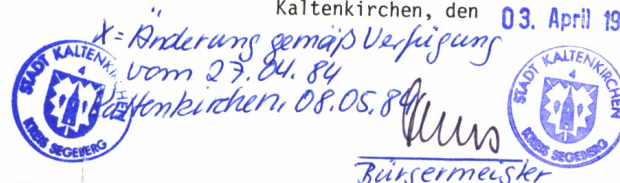 Kaltenkirchen, den 03. April 19
X = Änderung gemäß Verfügung
vom 27.04.84
Kaltenkirchen, 08.05.84
Bürgermeister
STADT KALTENKIRCHEN
KREIS SEGEBERG
STADT KALTENKIRCHEN
KREIS SEGEBERG